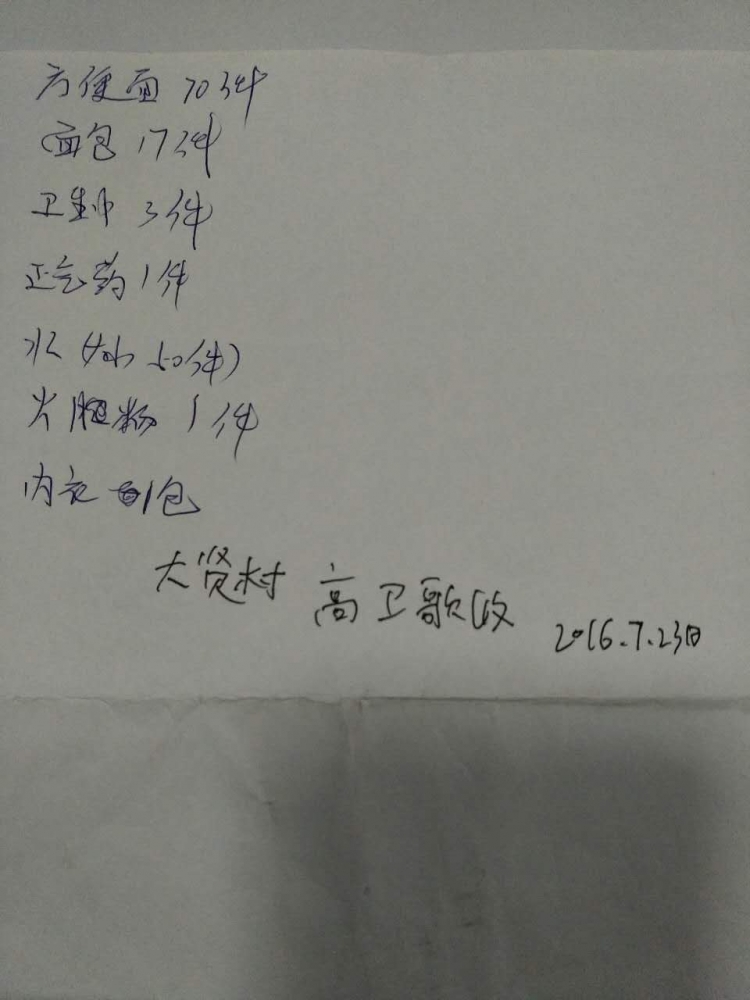 方便面 70件
面包 17件
卫生巾 3件
正气药 1件
水 50件)
火腿肠 1件
内衣 1包
大贤村 高卫歌收 2016.7.23日